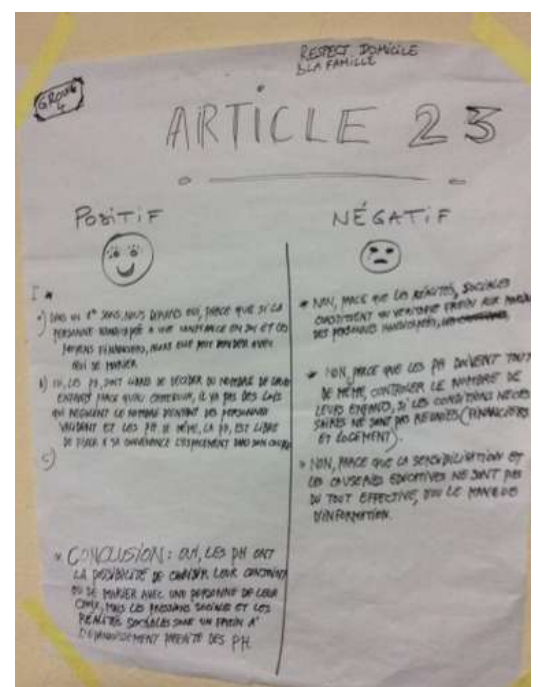 RESPECT DOMICILE
& LA FAMILLE
GROUPE
4
ARTICLE 23
POSITIF
I *
a) DANS UN 1er SENS, NOUS DISONS OUI, PARCE QUE SI LA
PERSONNE HANDICAPÉE A UNE CONFIANCE EN SOI ET LES
MOYENS FINANCIERS, ALORS ELLE PEUT DÉCIDER AVEC
QUI SE MARIER
b) OUI, LES PH, SONT LIBRES DE DÉCIDER DU NOMBRE DE LEURS
ENFANTS PARCE QU'AU CAMEROUN, IL Y A PAS DES LOIS
QUI RÉGULENT LE NOMBRE D'ENFANT DES PERSONNES
VALIDENT ET LES PH. DE MÊME, LA PH, EST LIBRE
DE À SA CONVENANCE L'ESPACEMENT DANS SON
c)
* CONCLUSION : OUI, LES PH ONT
LA POSSIBILITÉ DE CHOISIR LEUR CONJOINT
OU SE MARIER AVEC UNE PERSONNE DE LEUR
CHOIX, MAIS LES PRESSIONS SOCIALES ET LES
RÉALITÉS SOCIALES SONT UN FREIN À
L'ÉPANOUISSEMENT DES PH
NÉGATIF
* NON, PARCE QUE LES RÉALITÉS, SOCIALES
CONSTITUENT UN VÉRITABLE FREIN AUX
DES PERSONNES HANDICAPÉES,
* NON, PARCE QUE LES PH DOIVENT TOUT
DE MÊME, CONTRÔLER LE NOMBRE DE
LEURS ENFANTS, SI LES CONDITIONS NÉCES
SAIRES NE SONT PAS RÉUNIES (FINANCIÈRES
ET LOGEMENT).
* NON, PARCE QUE LA SENSIBILISATION ET
LES CAUSERIES ÉDUCATIVES NE SONT PAS
DU TOUT EFFECTIVE, D'OÙ LE MANQUE
D'INFORMATION.